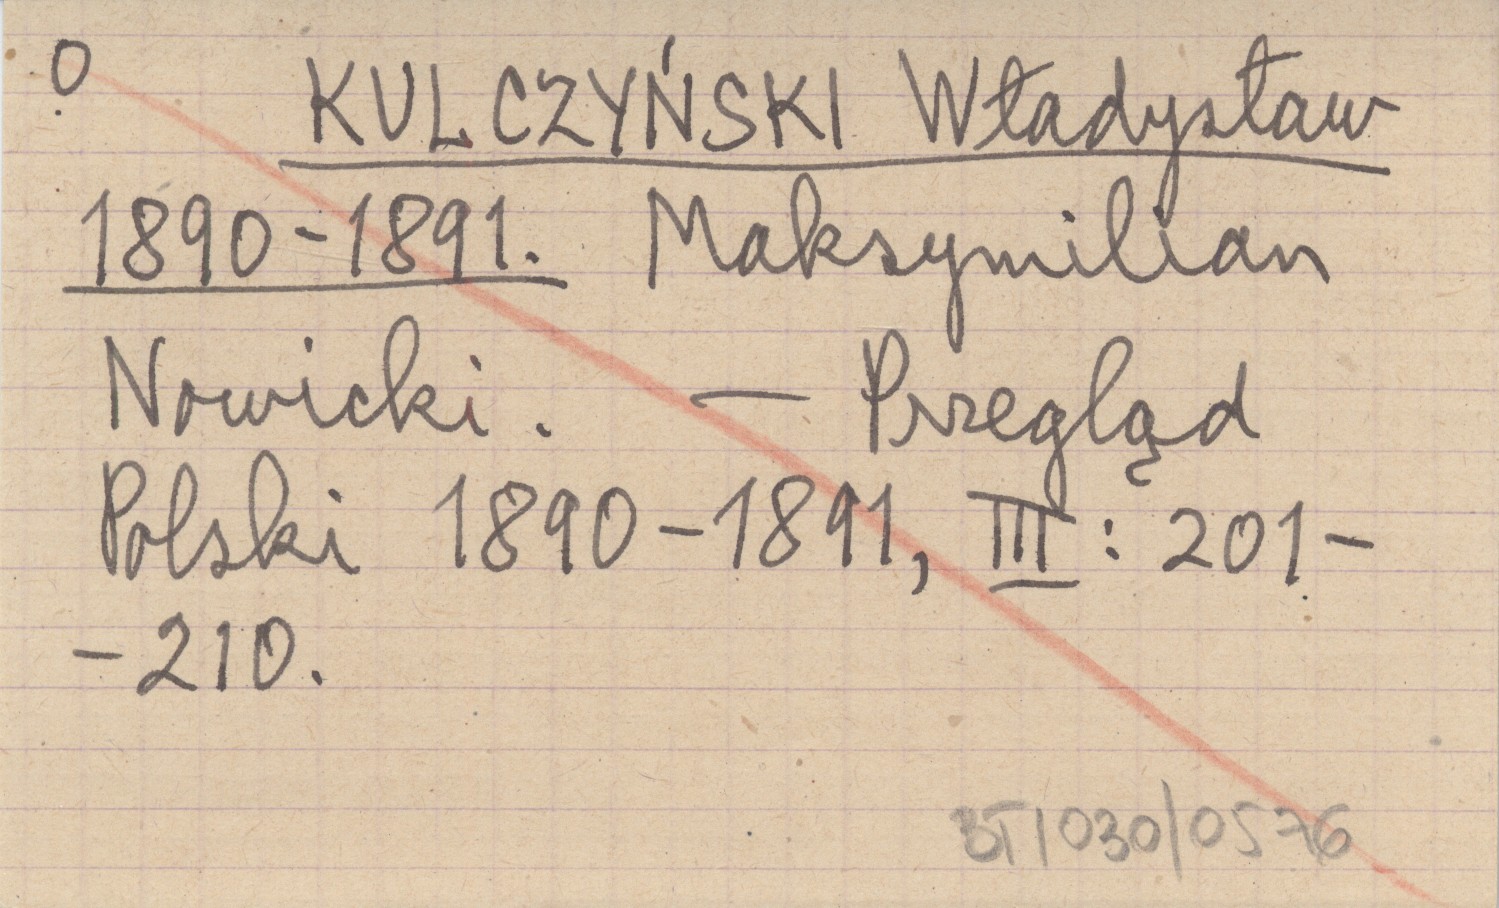 O KULCZYŃSKI Władysław
1890-1891. Maksymilian
Nowicki. — Przegląd
Polski 1890-1891, III: 201-
-210.
BT/030/0576